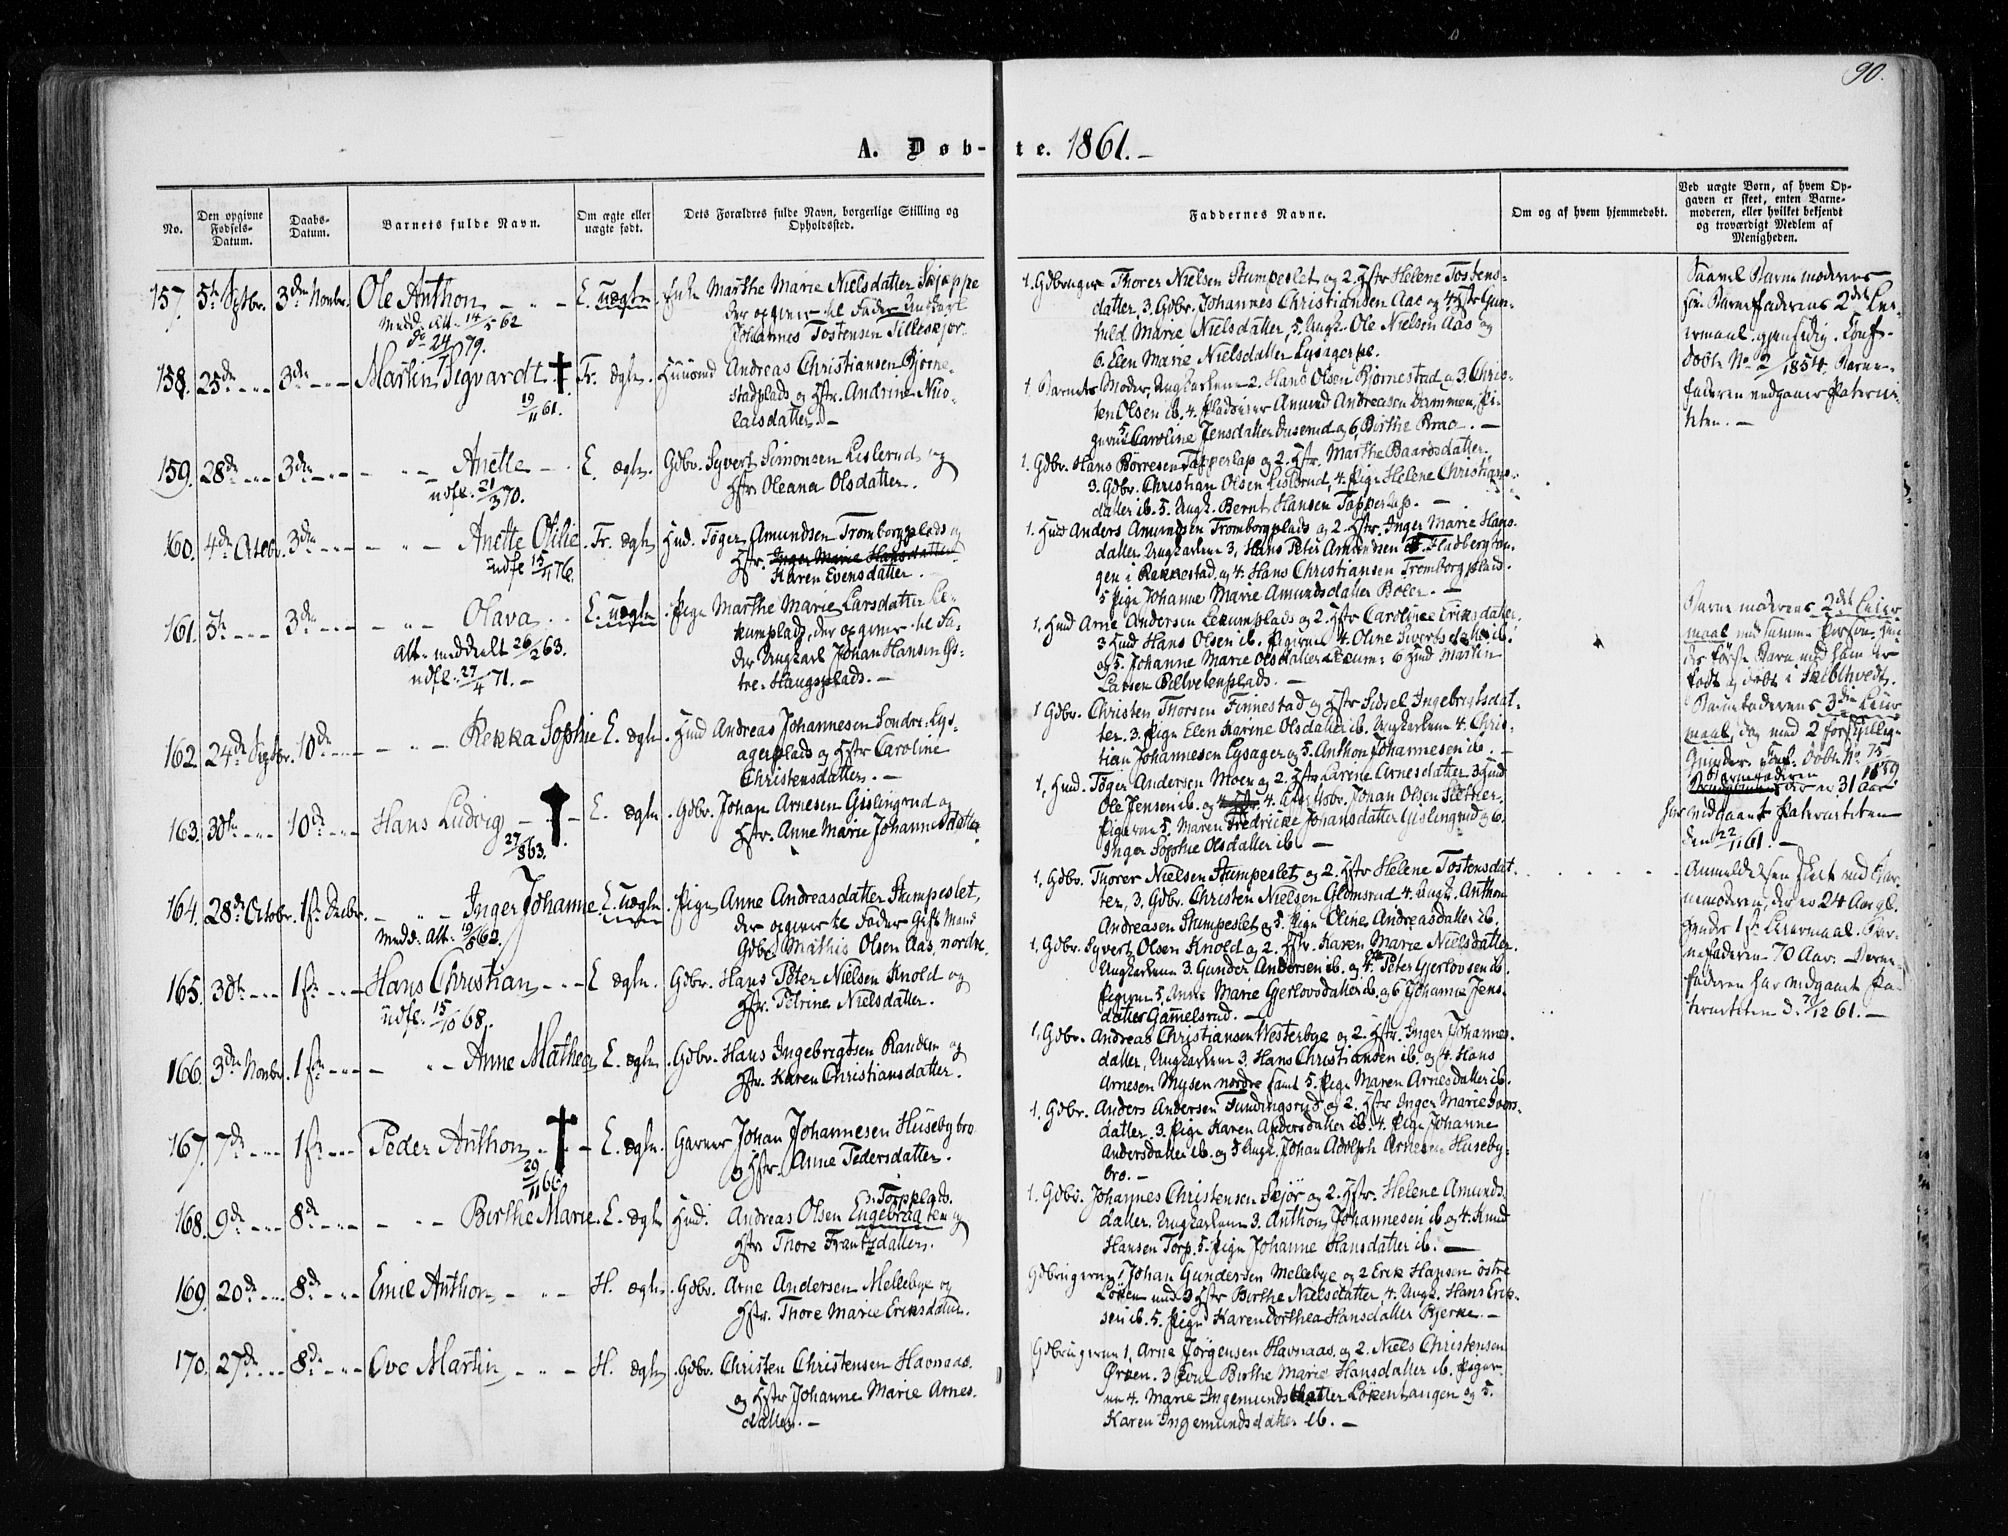 90.
A. Døb-te. 1861.-
No.
Den opgivne Fødsels-Datum.
Daabs-Datum.
Barnets fulde Navn.
Om ægte eller uægte født.
Dets Forældres fulde Navn, borgerlige Stilling og Opholdssted.
Faddernes Navne.
Om og af hvem hjemmedøbt.
Ved uægte Børn, af hvem Opgaven er skeet, enten Barnemoderen, eller hvilket bekjendt og troværdigt Medlem af Menigheden.
157. 5te Septbr. 3die Novbr. Ole Anthon E. uægte. Enke Marthe Marie Nielsdatter Skjeppe
Medd. Att. 14/5 62
24/1 79.
der opgiver til Fader Ungkarl
Johannes Tostensen
1. Gdbruger Thorer Nielsen Stumpeslet og 2. Hstr Helene Tostens-
datter, 3. Gdbr. Johannes Christiansen Aas og 4 Hstr Gun-
hild Marie Nielsdatter, 5. Ungk. Ole Nielsen Aas og
6. Elen Marie Nielsdatter
Barnemoderens
Barnefaderens 2det Lei-
ermaal.
No 2/1854. Barne-
faderen vedgaaer Paterni-
teten. -
158. 25de 3die Martin Sigvardt Fr. ægte. Huusmd Andreas Christiansen Bjørne-
19/11 61.
stadplads og Hstr. Andrine Nico-
laisdatter. -
1. Barnets Moder, Ungkarlene 2. Hans Olsen Bjørnestad og 3. Chris-
ten Olsen ib. 4. Amund Andreasen
5 Caroline Jensdatter og 6, Birthe
159. 28de 3die Anette E. ægte. Gdbr. Syvert Simonsen Lislerud og
udfl. 21/3 70.
Hstr Oleana Olsdatter.
1. Gdbr. Hans Børresen Tapperlap og 2. Hstr. Marthe Baardsdatter.
3. Gdbr. Christian Olsen Lislerud, 4. Pige Helene Christians-
datter ib. 5. Ungk. Bernt Hansen Tapperlap. -
160. 4de Octobr. 3die Anette Otilie Fr. ægte Husd. Tøger Amundsen Tromborgplads og
udfl 15/1 76.
Hstr. Inger Marie Hansdatter
Karen Evensdatter.
1. Husd Anders Amundsen Tromborgplads og 2. Hstr. Inger Marie Hans-
datter. Ungkarlene 3, Hans Peter Amundsen
gen i Rakkestad og 4. Hans Christiansen Tromborgplads.
5 Pige Johanne Marie Amundsdatter Boler. -
161. 5te 3die Olava E. uægte Pige Marthe Marie Larsdatter Le-
Att. meddelt 26/2 63.
udfl. 27/4 71. -
kumplads, der opgiver til Fa-
der Ungkarl Johan Hansen Øs-
tre-Haugsplads. -
1, Husd Arne Andersen Lekumplads og 2. Hstr Caroline Eriksdatter.
3 Husd Hans Olsen ib. Pigerne 4. Oline Sivertsdatter ib.
og 5. Johanne Marie Olsdatter Lekum. 6 Husd Martin
Larsen
Barnemoderens 2det Leier-
maal med samme Person,
født og døbt i Skibthvedt.
Barnefaderens 3die Leier-
maal, dog med 2 forskjellige
No 75/1859
Barnefaderen der er 31 Aar
har vedgaaet Paterniteten
den 22/11 61. -
162. 24de Septbr. 10de Rekka Sophie E. ægte. Husd Andreas Johannesen Sondre-Lys-
agerplads og Hstr Caroline
Christensdatter. -
1 Gdbr. Christen Thorsen Finnestad og Hstr Sidsel Ingebrigtsdat-
ter. 3. Pige Elen Karine Olsdatter ib. Ungkarlene 4. Chris-
tian Johannesen Lysager og 5. Anthon Johannesen ib. -
163. 30te 10de Hans Ludvig E. ægte. Gdbr. Johan Arnesen Gislingrud og
27/8 63.
Hstr. Anne Marie Johannesdatter
1, Husd. Tøger Andersen Moen og 2. Hstr Karene Arnesdatter 3 Husd
Ole Jensen ib. og 4. Johan Olsen Sletner.
Pigerne 5. Maren Fredrikke Johansdatter Gislingrud og 6.
Inger Sophie Olsdatter ib. -
164. 28de Octobr. 1ste Decbr. Inger Johanne E. uægte. Pige Anne Andreasdatter Stumpeslet,
Medd. Att. 19/5 62.
der opgiver til Fader Gift Mand
Gdbr. Mathis Olsen Aas, nordre.
1, Gdbr. Thorer Nielsen Stumpeslet og 2. Hstr Helene Tostensdat-
ter, 3, Gdbr. Christen Nielsen Glomsrud 4. Ungk. Anthon
Andreasen Stumpeslet og 5. Pige Oline Andreasdatter ib.
Anmeldelsen skeet ved Bar-
nemoderen, der er 24 Aar gl.
hendes 1ste Leiermaal. Bar-
nefaderen 70 Aar. Barne-
faderen har vedgaaet Pa-
terniteten d. 7/12 61. -
165. 30te 1ste Hans Christian E ægte. Gdbr. Hans Peter Nielsen Knold og
udfl. 15/10 68.
Hstr. Petrine Nielsdatter.
1. Gdbr. Syvert Olsen Knold og 2. Hstr. Karen Marie Nielsdatter.
Ungkarlene 3. Gunder Andersen ib. og 4. Peter Gjerlovsen ib.
Pigerne 5. Anne Marie Gerlovsdatter ib. og 6 Johanne Jens-
datter Gammelsrud. -
166. 3die Novbr. 1ste Anne Mathea E. ægte. Gdbr. Hans Ingebrigtsen Randem og
Hstr. Karen Christiansdatter.
1. Gdbr. Andreas Christiansen Westerbye og 2. Hstr. Inger Johannes-
datter, Ungkarlene 3. Hans Christiansen ib. og 4. Hans
Arnesen Mysen nordre samt 5. Pige Maren Arnesdatter ib.
167. 7de 1ste Peder Anthon E. ægte. Garver Johan Johannesen Husebybro
29/11 66.
og Hstr. Anne Pedersdatter.
1. Gdbr. Anders Andersen Tundingsrud og 2. Hstr Inger Marie Ivers-
datter. 3. Pige Karen Andersdatter ib. 4. Pige Johanne
Andersdatter ib. og 5 Ungk. Johan Adolph Arnesen Huseby-
bro. -
168. 9de 8de Birthe Marie. E. ægte Husd. Andreas Olsen Engebraaten og
Torpplads.
Hstr Thore Frantzdatter.
1. Gdbr. Johannes Christensen Skjør og 2. Hstr. Helene Amunds-
datter. Ungkarlene 3. Anthon Johannesen ib og 4. Knud
Hansen Torp. 5. Pige Johanne Hansdatter ib. -
169. 20de 8de Emil Anthon H. ægte. Gdbr. Arne Andersen Mellebye og
Hstr. Thore Marie Eriksdatter.
Gdbrugerne 1 Johan Gundersen Mellebye og 2 Erik Hansen østre
Løken med 3 Hstr Birthe Nielsdatter, 4. Ungk. Hans Erik-
sen ib. 5. Pige Karen Dorthea Hansdatter Bjerke. -
170. 27de 8de Ove Martin H. ægte Gdbr. Christen Christensen Havnaas
og Hstr Johanne Marie Arnes-
datter. -
Gdbrugerne 1. Arne Jørgensen Havnaas og 2. Niels Christensen
3 Birthe Marie Hansdatter ib. Piger-
ne 4. Marie Ingemundsdatter Løkentangen og 5.
Karen Ingemundsdatter ib. -